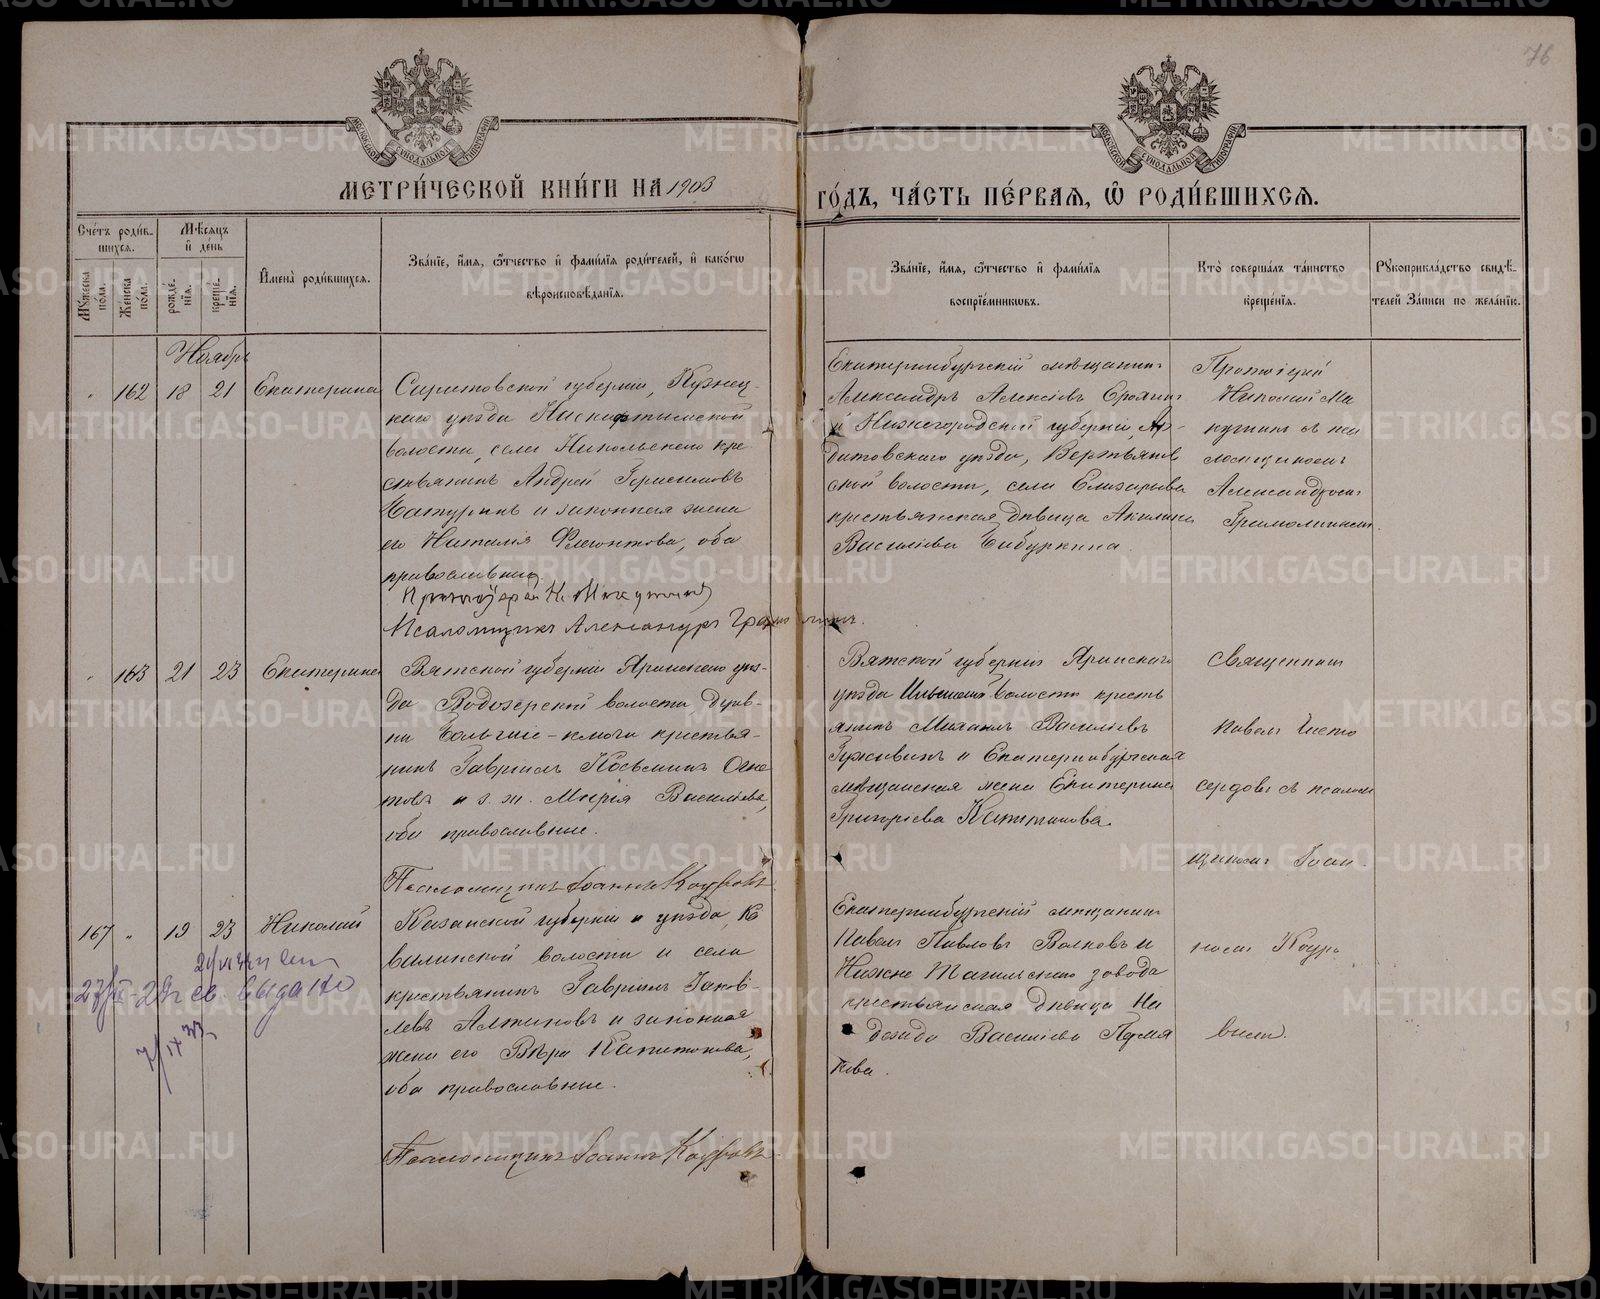 76
МЕТРИ́ЧЕСКОЙ КНИ́ГИ НА 1903
ГО́ДЪ, ЧА́СТЬ ПЕ́РВАЯ, Ѽ РОДИ́ВШИХСЯ.
Сче́тъ роди́в-
шихся.
Мѣ́сяцъ
и҆ де́нь
Мꙋ́жеска по́ла.
Же́нска по́ла.
рожде́нїя.
креще́нїя.
И҆мена̀ роди́вшихся.
Зва́нїе, и҆́мя, ѻ҆́тчество и҆ фами́лїя роди́телей, и҆ како́гѡ
вѣроисповѣ́данїя.
Зва́нїе, и҆́мя, ѻ҆́тчество и҆ фами́лїя
воспрїе́мникѡвъ.
Кто̀ соверша́лъ та́инство
креще́нїя.
Рꙋкоприкла́дство свидѣ́-
телей за́писи по жела́нїю.
Ноябрь
162 18 21 Екатерина
Саратовской губерніи, Кузнец-
каго уѣзда
волости, села Никольскаго кре-
стьянинъ Андрей Герасимовъ
и законная жена
его Наталія Флегонтова, оба
православные.
Протоіерей Н. Макушинъ
Псаломщикъ Александръ Грамолинъ.
Екатеринбургскій мѣщанинъ
Александръ Алексѣевъ Ерохинъ
и Нижегородской губерніи, Ар-
датовскаго уѣзда,
ской волости, села Елизарьева
крестьянская дѣвица Акилина
Василіева Сибуркина.
Протоіерей
Николай Ма
кушинъ съ пса
ломщикомъ
Александромъ
Грамолинымъ.
163 21 23 Екатерина
Вятской губерніи Яранскаго уѣз-
да Водозерской волости, дерев-
ни Большіе-ключи крестья-
нинъ Гавріилъ Косьминъ
и з. ж. Марія Василіева,
оба православные.
Псаломщикъ Іоаннъ Коуровъ
Вятской губерніи Яранскаго
уѣзда волости кресть
янинъ Михаилъ Василіевъ
и Екатеринбургская
мѣщанская жена Екатерина
Григоріева Капитонова.
Священникъ
Павелъ Чисто
сердовъ съ псалом
щикомъ Іоан-
номъ Коуро
вымъ.
167 " 19 23 Николай
Казанской губерніи и уѣзда, Ко
валинской волости и села
крестьянинъ Гавріилъ Іаков-
левъ Алтыновъ и законная
жена его Вѣра Капитонова,
оба православные.
Псаломщикъ Іоаннъ Коуровъ
Екатеринбургскій мѣщанинъ
Павелъ Павловъ Волковъ и
Нижне Тагильскаго завода
крестьянская дѣвица На
дежда Василіева Пермя
кова.
выдано
METRIKI.GASO-URAL.RU